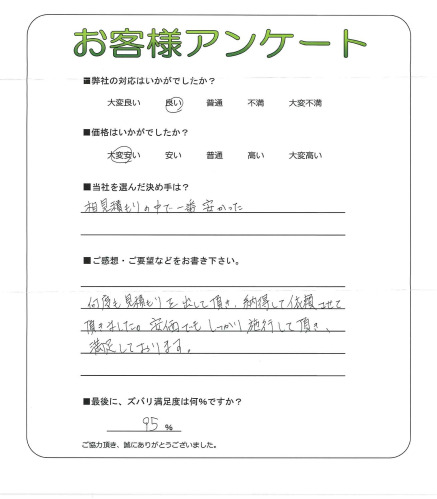 お客様アンケート
■弊社の対応はいかがでしたか？
大変良い 良い 普通 不満 大変不満
■価格はいかがでしたか？
大変安い 安い 普通 高い 大変高い
■当社を選んだ決め手は？
相見積もりの中で一番安かった
■ご感想・ご要望などをお書き下さい。
何度も見積もりを出して頂き、納得して依頼させて
頂きました。安価でもしっかり施行して頂き、
満足しております。
■最後に、ズバリ満足度は何％ですか？
95 %
ご協力頂き、誠にありがとうございました。